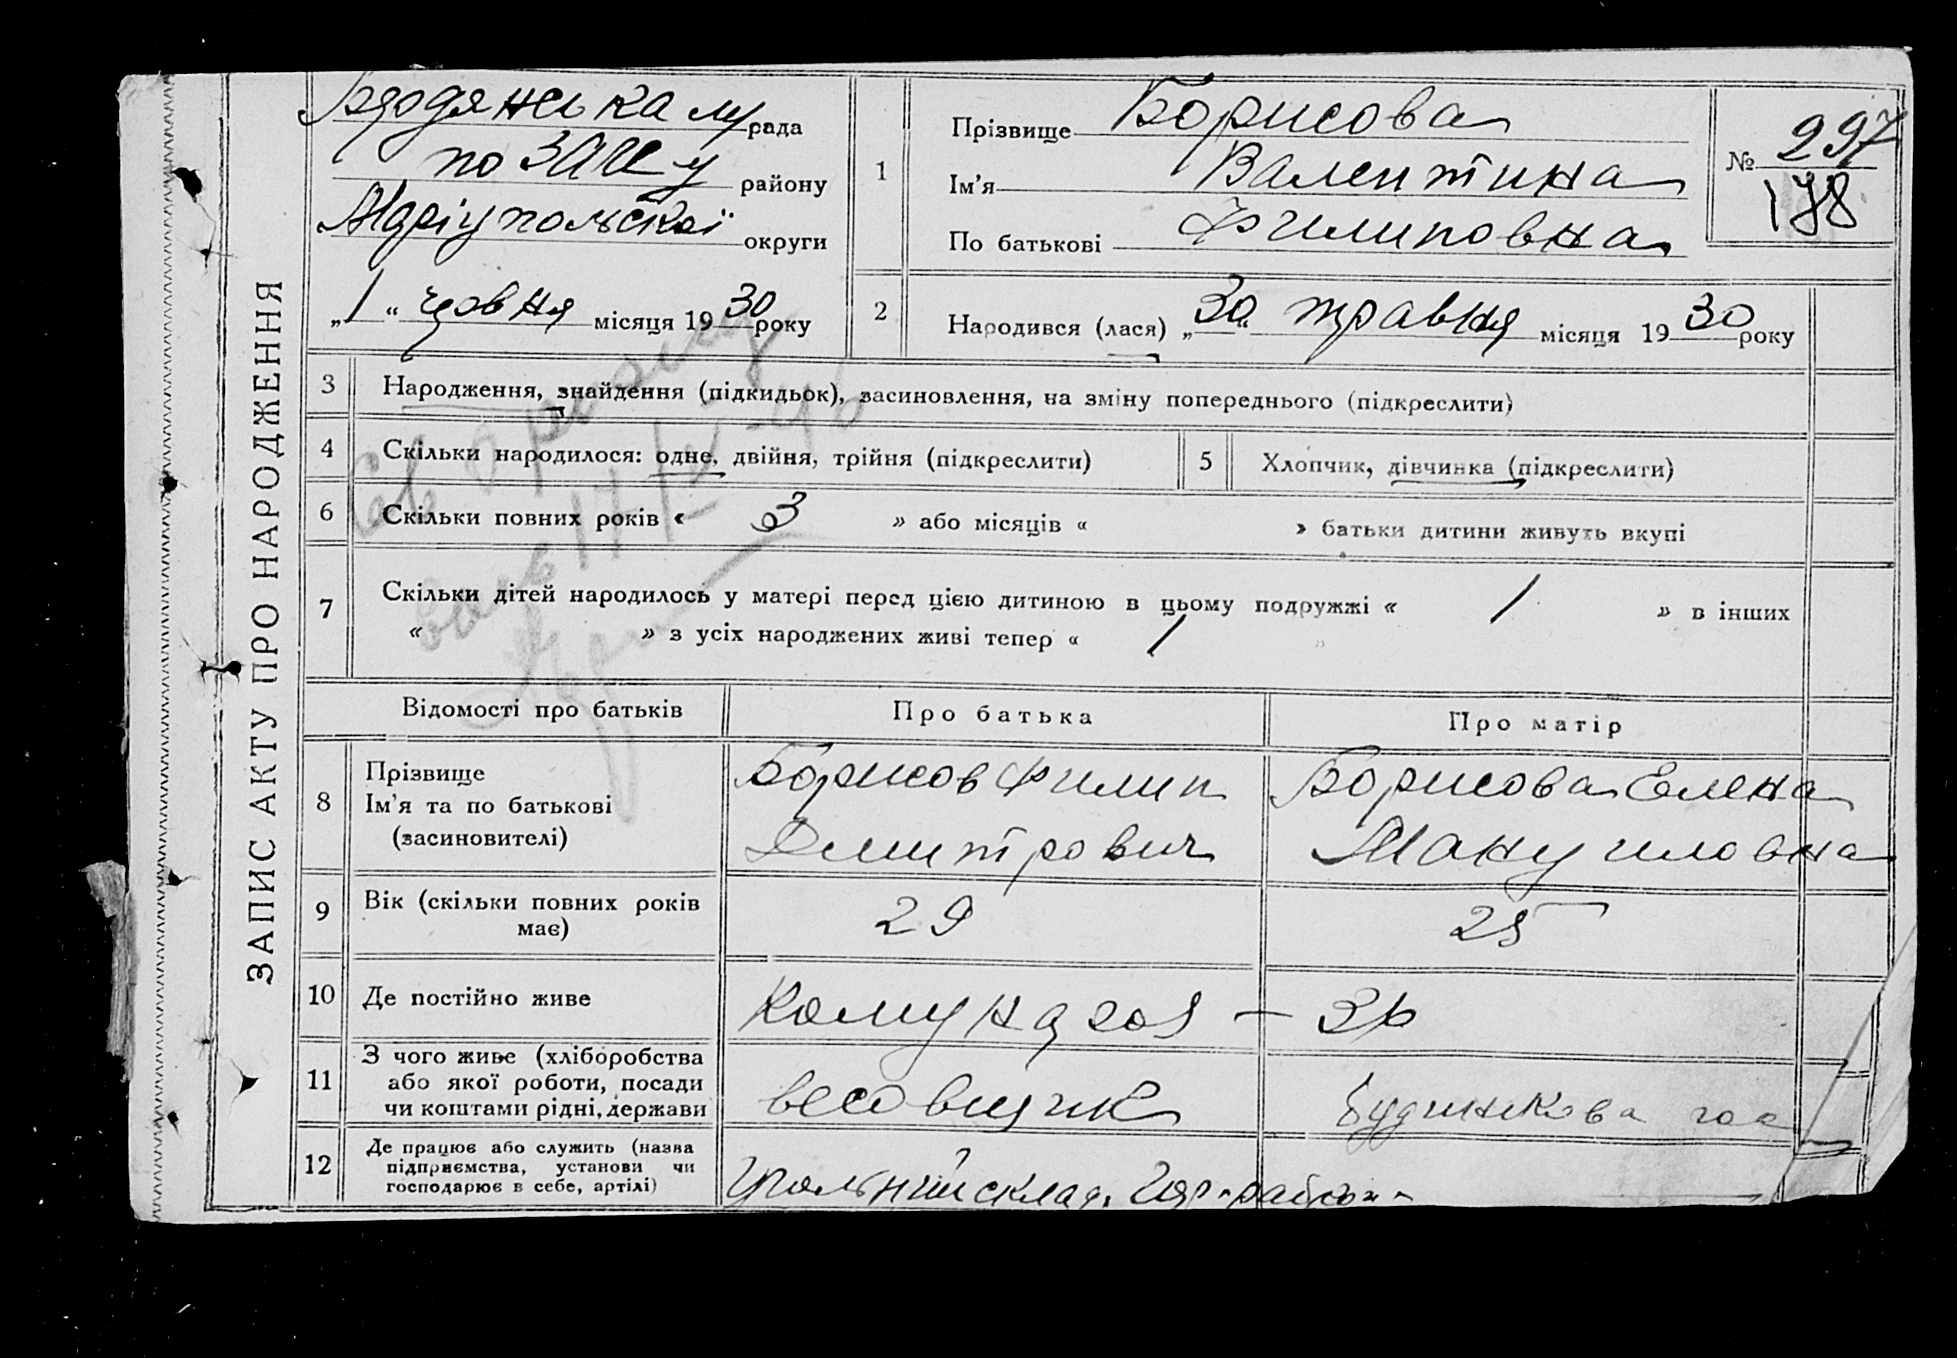 ЗАПИС АКТУ ПРО НАРОДЖЕННЯ
Бердянська м рада
по ЗАГСу району
Маріупольскої округи
„1“ червня місяця 1930 року
1
Прізвище Борисова
Ім’я Валентина
По батькові Филиповна
№ 297
178
2
Народився (лася) „30“ травня місяця 1930 року
3 Народження, знайдення (підкидьок), засиновлення, на зміну попереднього (підкреслити)
4 Скільки народилося: одне, двійня, трійня (підкреслити)
5 Хлопчик, дівчинка (підкреслити)
6 Скільки повних років « 3 » або місяців « » батьки дитини живуть вкупі
7 Скільки дітей народилось у матері перед цією дитиною в цьому подружжі « 1 » в інших
« » з усіх народжених живі тепер « 1 »
Відомості про батьків Про батька Про матір
8 Прізвище
Ім’я та по батькові
(засиновителі)
Борисов Филип
Дмитрович
Борисова Елена
Мануиловна
9 Вік (скільки повних років
має)
29
25
10 Де постійно живе
11 З чого живе (хліборобства
або якої роботи, посади
чи коштами рідні, держави
весовщик
будинкова гос
12 Де працює або служить (назва
підприємства, установи чи
господарює в себе, артілі)
склад